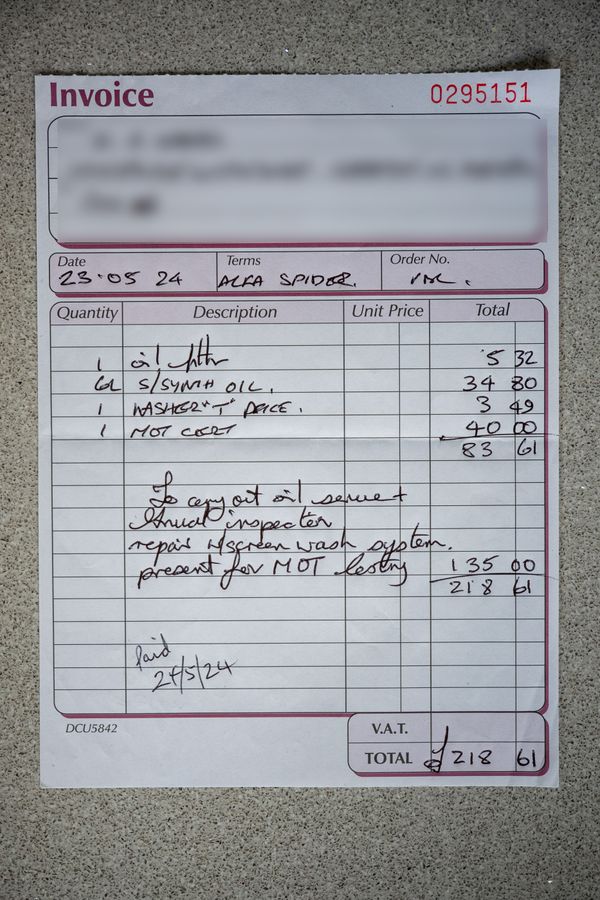 Invoice
0295151
Date Terms Order No.
23·05 24 ALFA SPIDER.
Quantity Description Unit Price Total
1 oil filtr 5 32
6L S/SYNTH OIL. 34 80
1 WASHER "T" PEICE. 3 49
1 MOT CERT 40 00
83 61
To carry out oil service +
Anual inspection
repair w/screen wash system.
present for MOT testing 135 00
218 61
Paid
24/5/24
DCU5842
V.A.T.
TOTAL £ 218 61